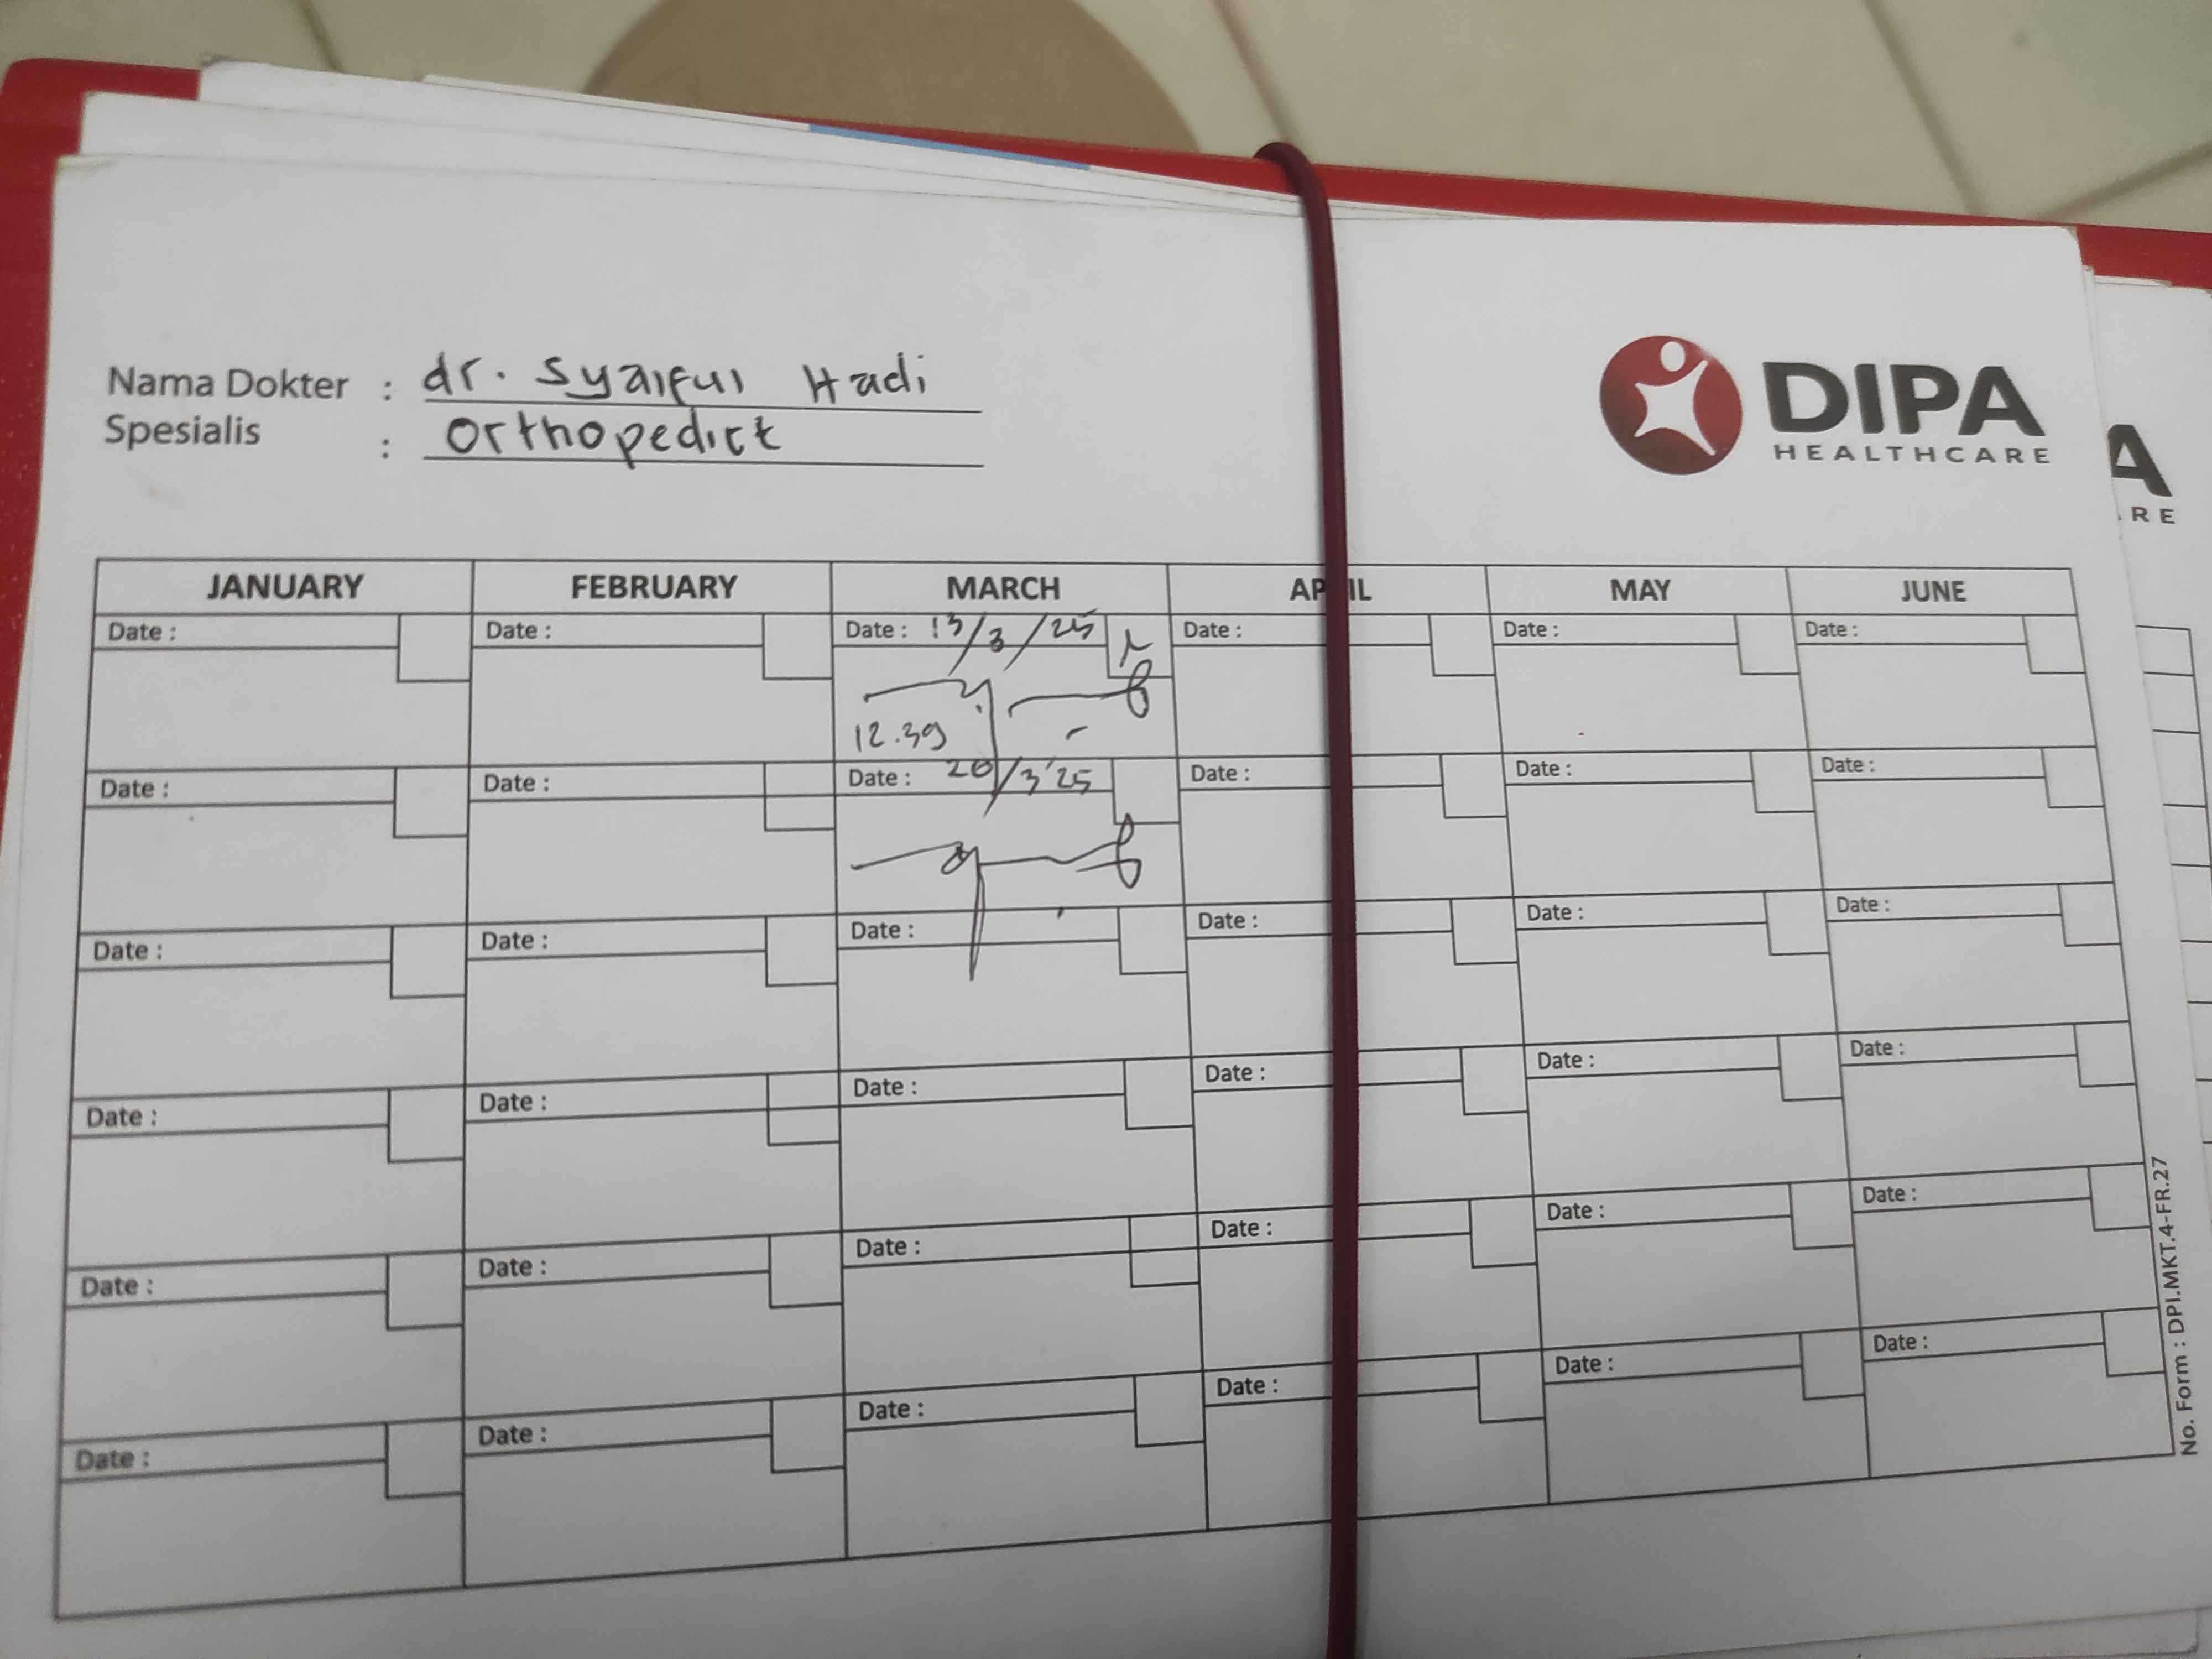 Nama Dokter : dr. Syaiful Hadi
Spesialis : Orthopedict
DIPA
HEALTHCARE
A
RE
JANUARY FEBRUARY MARCH APRIL MAY JUNE
Date : Date : Date : 13/3/25 Date : Date : Date :
12.39
Date : Date : Date : 20/3'25 Date : Date : Date :
Date : Date : Date : Date : Date : Date :
Date : Date : Date : Date : Date : Date :
Date : Date : Date : Date : Date : Date :
Date : Date : Date : Date : Date : Date :
No. Form : DPI.MKT.4-FR.27